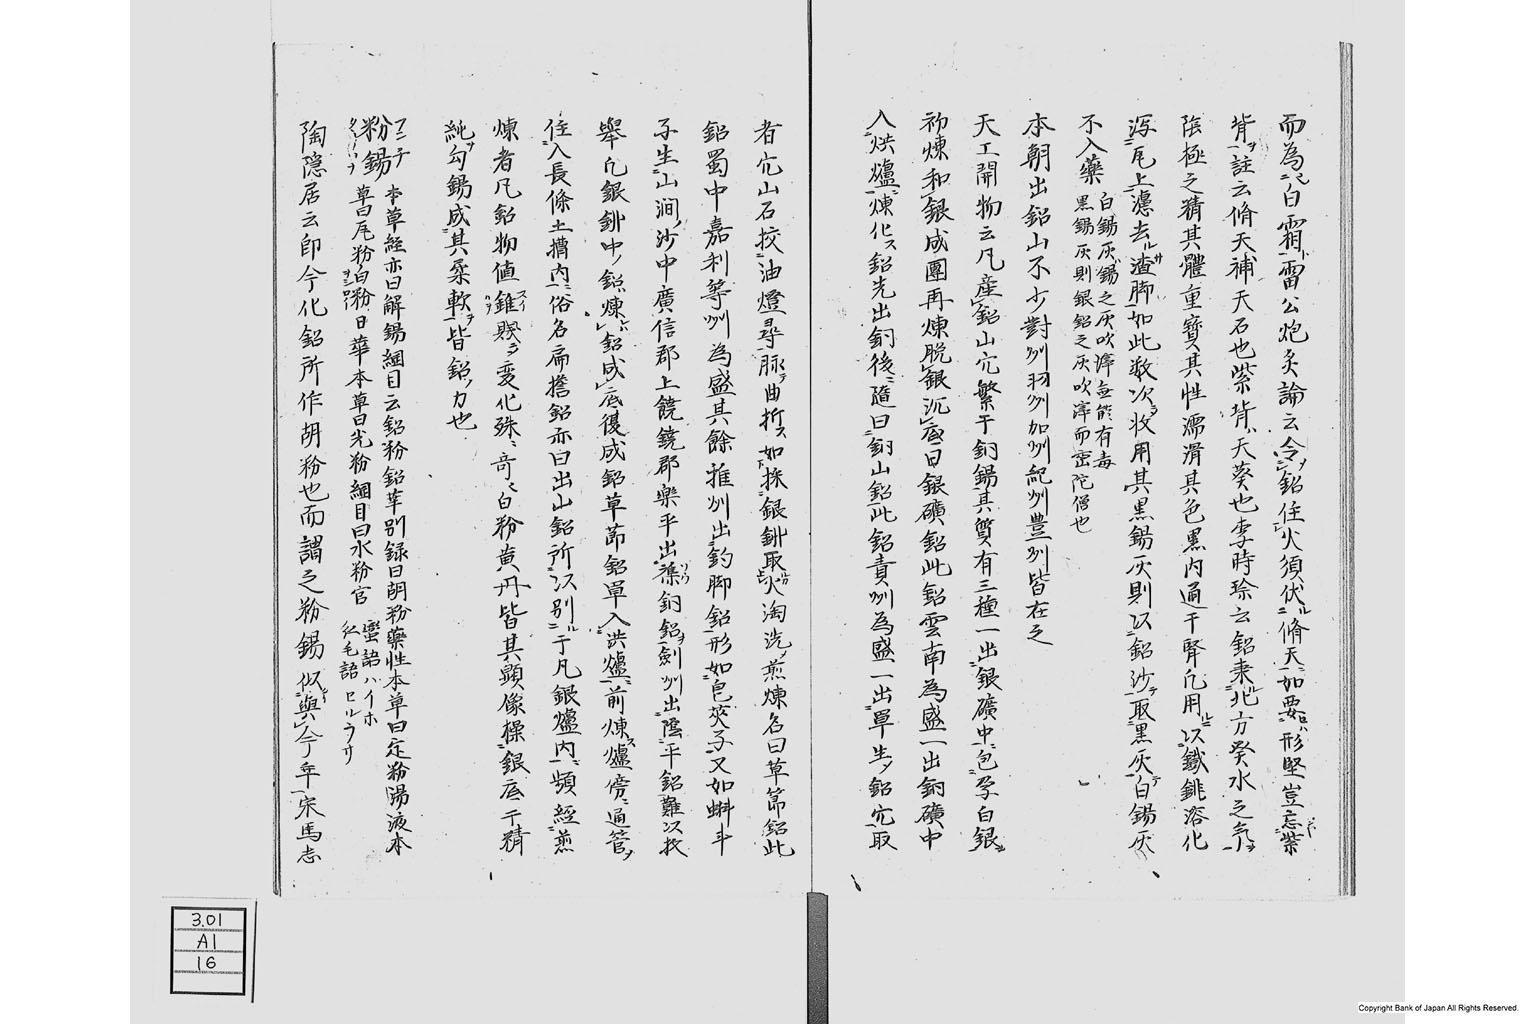 而為白霜雷公炮炙論云令鉛住火須伏脩天如要形堅豈忘紫
背註云脩天補天石也紫背天葵也李時珍云鉛耒北方癸水之氣
陰極之精其體重實其性濡滑其色黒内通于腎凢用以鐵銚溶化
瀉瓦上濾去渣脚如此数次收用其黒錫灰則以鉛沙取黒灰白錫灰
不入藥 白錫灰錫之灰吹滓無能有毒
黒錫灰則銀鉛之灰吹滓而密陀僧也
本朝出鉛山不少對州羽州加州紀州豊州皆在之
天工開物云凡産鉛山穴繁于銅錫其質有三種一出銀礦中包孕白銀
初煉和銀成團再煉脱銀沉底曰銀礦鉛此鉛雲南為盛一出銅礦中
入烘爐煉化鉛先出銅後隨曰銅山鉛此鉛貴州為盛一出單生鉛穴取
者穴山石挍油燈尋脉曲折如採銀鉚取火淘洗煎煉名曰草節鉛此
鉛蜀中嘉利等州為盛其餘雅州出釣脚鉛形如皀莢子又如蝌斗
子生山澗沙中廣信郡上饒饒郡樂平出雜銅鉛劍州出陰平鉛難以枚
舉凢銀鉚中鉛煉鉛成底復成鉛草節鉛單入洪爐前煉爐傍通管
住入長條土槽内俗名扁擔鉛亦曰出山鉛所以别于凡銀爐内頻經煎
煉者凡鉛物値雖賤変化殊奇白粉黄丹皆其顕像操銀底于精
純勾錫成其柔軟皆鉛ノ力也
粉錫 本草經亦曰解錫綱目云鉛粉鉛華别録曰胡粉藥性本草曰定粉湯液本
草曰尾粉白粉日華本草曰光粉綱目曰水粉官 蛮語ハイホ
紅毛語セルウサ
陶隠居云即今化鉛所作胡粉也而謂之粉錫似與今年宋馬志
3.01
A1
16
Copyright Bank of Japan All Rights Reserved.